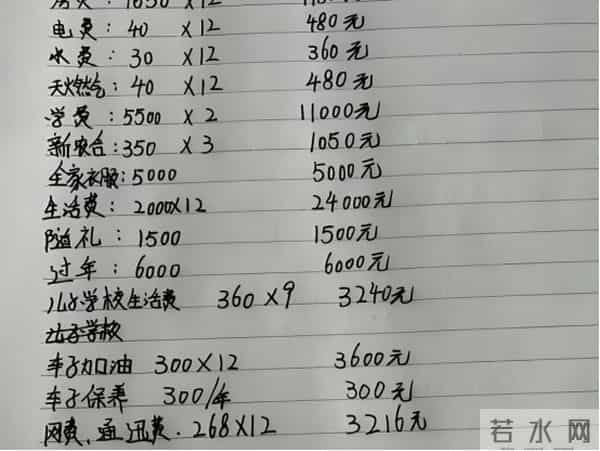 电费: 40 X12 480元
水费: 30 X12 360元
天燃气: 40 X12 480元
学费: 5500 X 2 11000元
新农合: 350 X 3 1050元
全家衣服: 5000 5000元
生活费: 2000X12 24000元
随礼: 1500 1500元
过年: 6000 6000元
儿子学校生活费 360 X 9 3240元
车子加油 300X12 3600元
车子保养 300/年 300元
网费、通迅费. 268X12 3216元
若水网